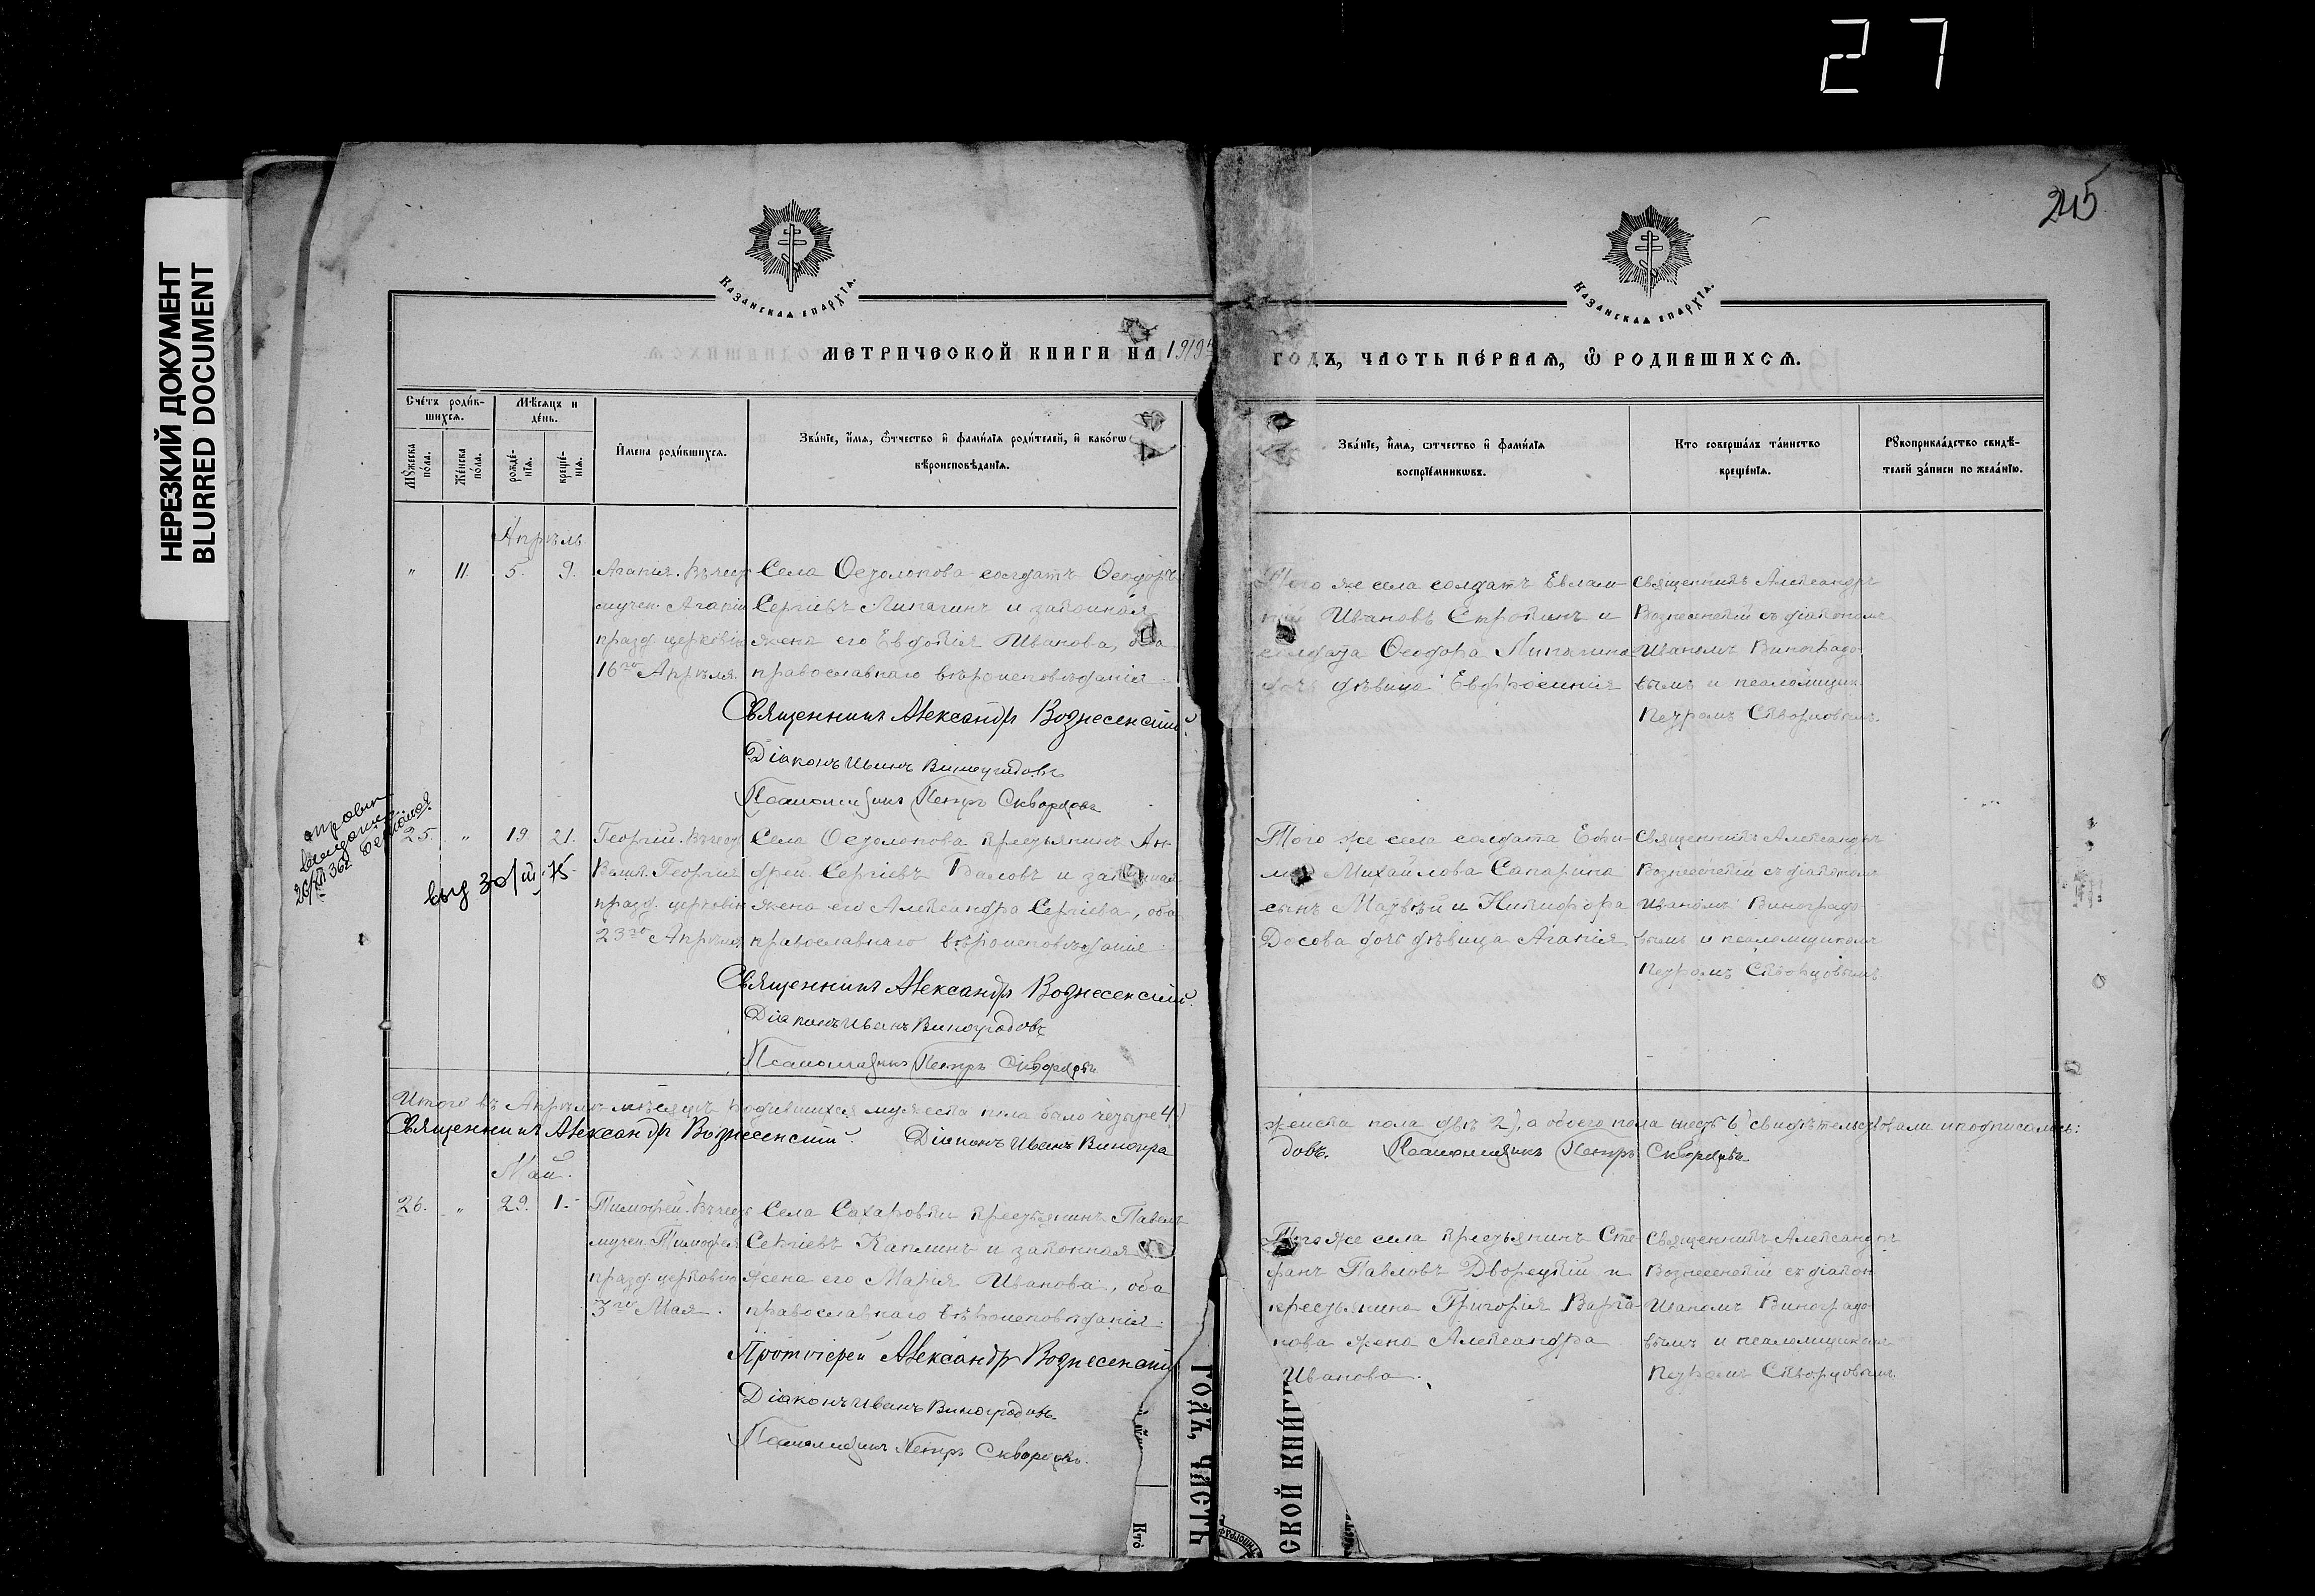 27
НЕРЕЗКИЙ ДОКУМЕНТ
BLURRED DOCUMENT
245
Казанская епархїа.
Казанская епархїа.
МЕТРИЧЕСКОЙ КНИГИ НА 1919
ГОДЪ, ЧАСТЬ ПЕ́РВАЯ, Ѿ РОДИВШИХСѦ.
Сче́тъ роди́в-
шихся.
Мѣ́сяцъ и
де́нь.
Мꙋ́жеска
по́ла.
Же́нска
по́ла.
рожде́-
нїя.
креще́-
нїя.
И҆мена роди́вшихся.
Зва́нїе, и҆́мя, ѻ҆́тчество и҆ фами́лїя роди́телей, и҆ како́гѡ
вѣроисповѣ́данїя.
Зва́нїе, и҆́мя, ѻ҆́тчество и҆ фами́лїя
воспрїе́мникѡвъ.
Кто соверша́лъ та́инство
креще́нїя.
Рꙋкоприкла́дство свидѣ́-
телей за́писи по жела́нїю.
Апрѣль
" 11. 5. 9.
Агапия. Въ честь
мучен. Агапіи
празд. церковію
16го Апрѣля.
Села солдатъ Ѳеодоръ
Сергіевъ Липагинъ и законная
жена его Евдокія Иванова, оба
православнаго вѣроисповѣданія.
Священникъ Александръ Вознесенскій.
Діаконъ Иванъ Виноградовъ
Псаломщикъ Петръ Скворцовъ
Того же села солдатъ Евлам-
пій Ивановъ и
солдата Ѳеодора Липагина
дочь дѣвица Евфросинія
Священникъ Александръ
Вознесенскій съ діакономъ
Иваномъ Виноградо-
вымъ и псаломщик.
Петромъ Скворцовымъ.
26/XII 36г.
выд 30/III-75
25. " 19 21.
Георгій. Въ честь
Велик. Георгія
празд. церковію
23го Апрѣля
Села крестьянинъ Ан-
дрей Сергіевъ Баловъ и законная
жена его Александра Сергіева, оба
православнаго вѣроисповѣданія.
Священникъ Александръ Вознесенскій.
Діаконъ Иванъ Виноградовъ
Псаломщикъ Петръ Скворцовъ
Того же села солдата Ефи-
ма Михайлова Сапарина
сынъ Матвѣй и Никифора
Досова дочь дѣвица Агапія
Священникъ Александръ
Вознесенскій съ діакономъ
Иваномъ Виноградо-
вымъ и псаломщикомъ
Петромъ Скворцовымъ
Итого въ Апрѣлѣ мѣсяцѣ родившихся мужеска пола было четыре 4)
женска пола двѣ 2), а обоего пола шесть 6) свидѣтельствовали и подписались:
Священникъ Александръ Вознесенскій. Діаконъ Иванъ Виногра
довъ. Псаломщикъ Петръ Скворцовъ
Май.
26. " 29. 1.
Тимофей. Въ честь
мучен. Тимофея
празд. церковію
3го Мая.
Села Сахаровки крестьянинъ Павелъ
Сергіевъ Каплинъ и законная
жена его Марія Иванова, оба
православнаго вѣроисповѣданія.
Протоіерей Александръ Вознесенскій
Діаконъ Иванъ Виноградовъ.
Псаломщикъ Петръ Скворцовъ.
Того же села крестьянинъ Сте-
фанъ Павловъ Дворецкій и
крестьянина Григорія Варга-
нова жена Александра
Иванова.
Священникъ Александръ
Вознесенскій съ діакон
Иваномъ Виноградо-
вымъ и псаломщикомъ
Петромъ Скворцовымъ
ГОДЪ, ЧАСТЬ
Кто̀
СКОЙ КНИ́ГИ